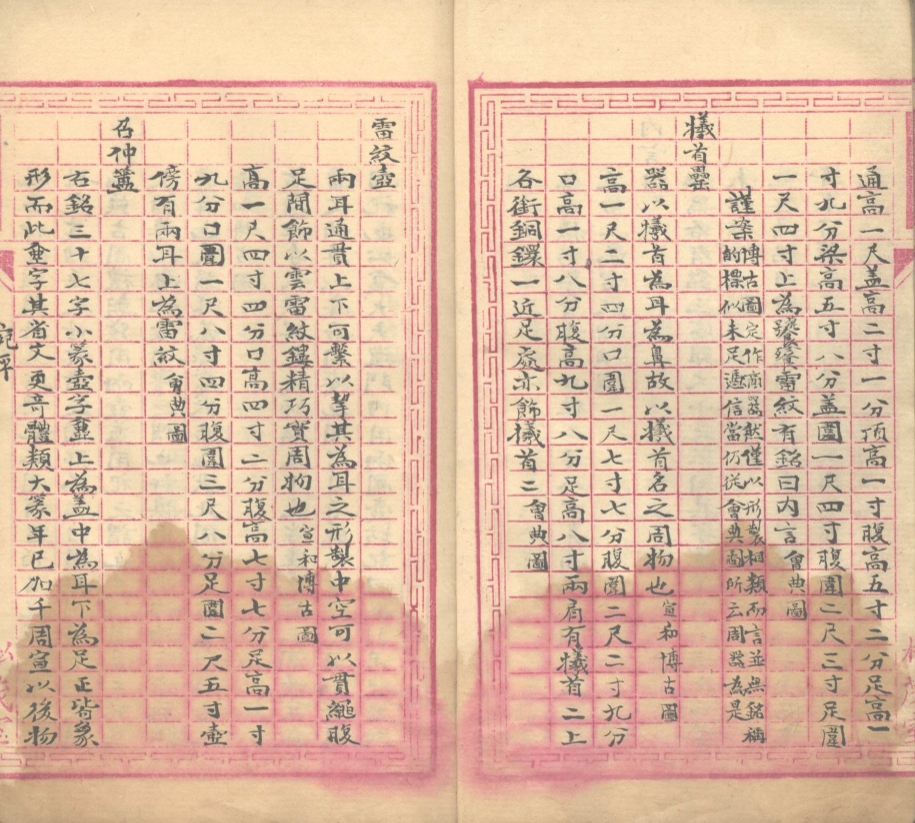 通高一尺盖高二寸一分頂高一寸腹高五寸二分足高一
寸九分梁高五寸八分盖圍一尺四寸腹圍二尺三寸足圍
一尺四寸上為饕餮雷紋有銘曰內言會典圖
謹案博古圖定作商器然僅以形製相類而言並無銘稱
的標似未足遽信當仍從會典圖所云周器為是
犧首罍
器以犧首為耳為鼻故以犧首名之周物也宣和博古圖
高一尺二寸四分口圍一尺七寸七分腹圍二尺二寸九分
口高一寸八分腹高九寸八分足高八寸兩肩有犧首二上
各銜銅鐶一近足處亦飾犧首二會典圖
雷紋壺
兩耳通貫上下可繫以挈其為耳之形製中空可以貫繩腹
足間飾以雲雷紋鏤精巧實周物也宣和博古圖
高一尺四寸四分口高四寸二分腹高七寸七分足高一寸
九分口圍一尺八寸四分腹圍三尺八分足圍二尺五寸壺
傍有兩耳上為雷紋會典圖
召仲
右銘三十七字小篆壺字上為盖中為耳下為足正皆象
形而此壺字其省文更奇體類大篆年已加千周宣以後物